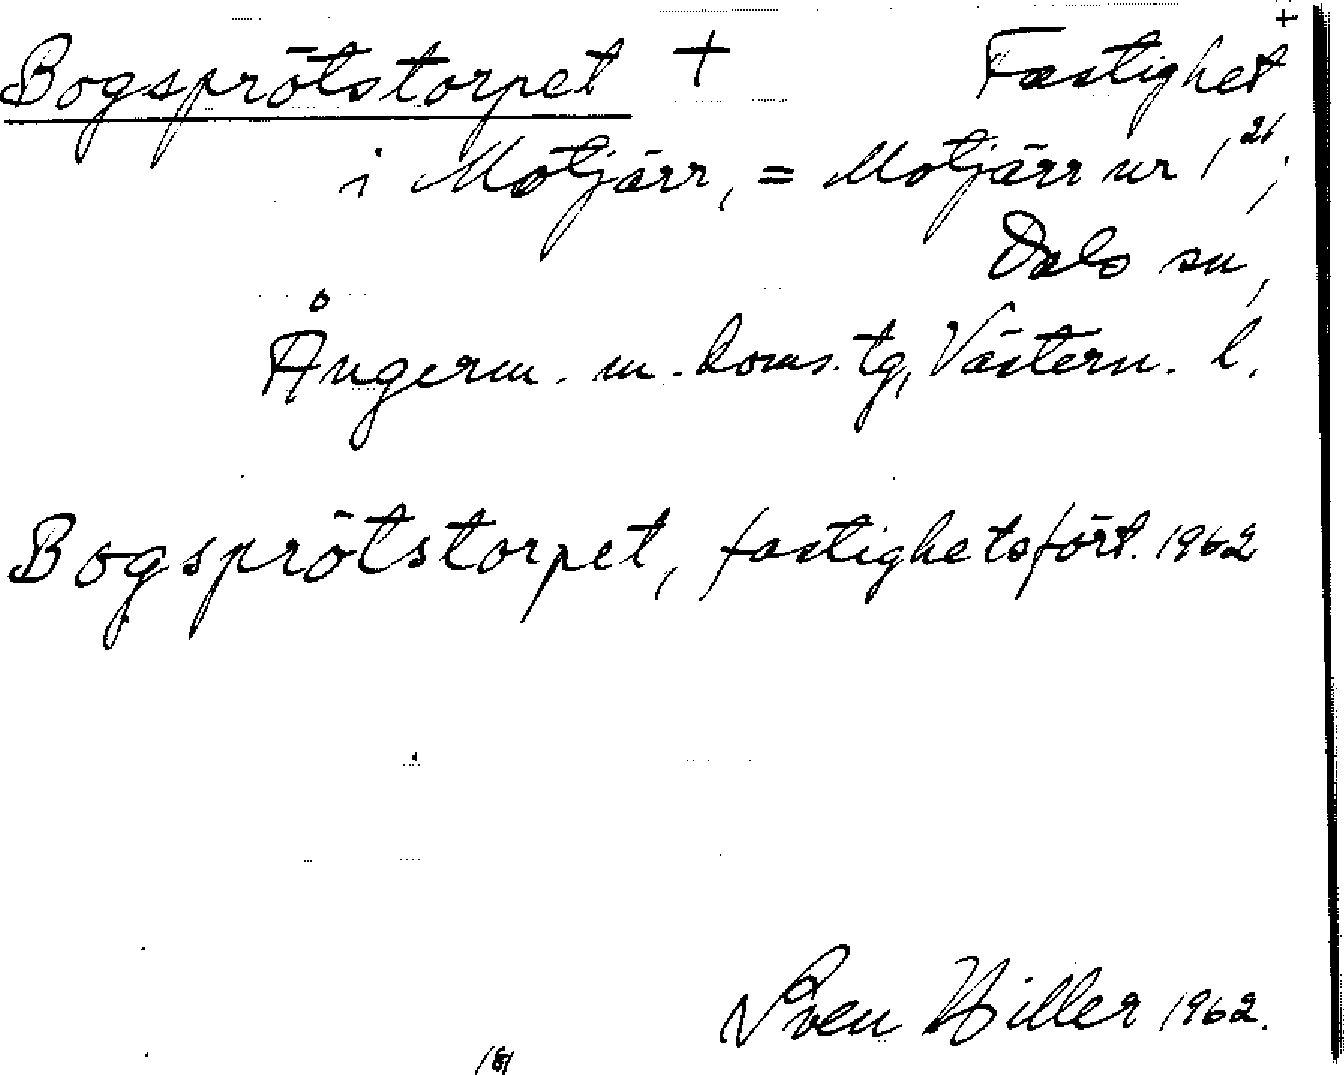 Bogsprötstorpet + Fastighet +
i Motjärr, = Motjärr nr 1²¹;
Dals sn,
Ångerm. m. doms. tg, Västern. l.
Bogsprötstorpet, fastighetsfört. 1962
Sven Hiller 1962.